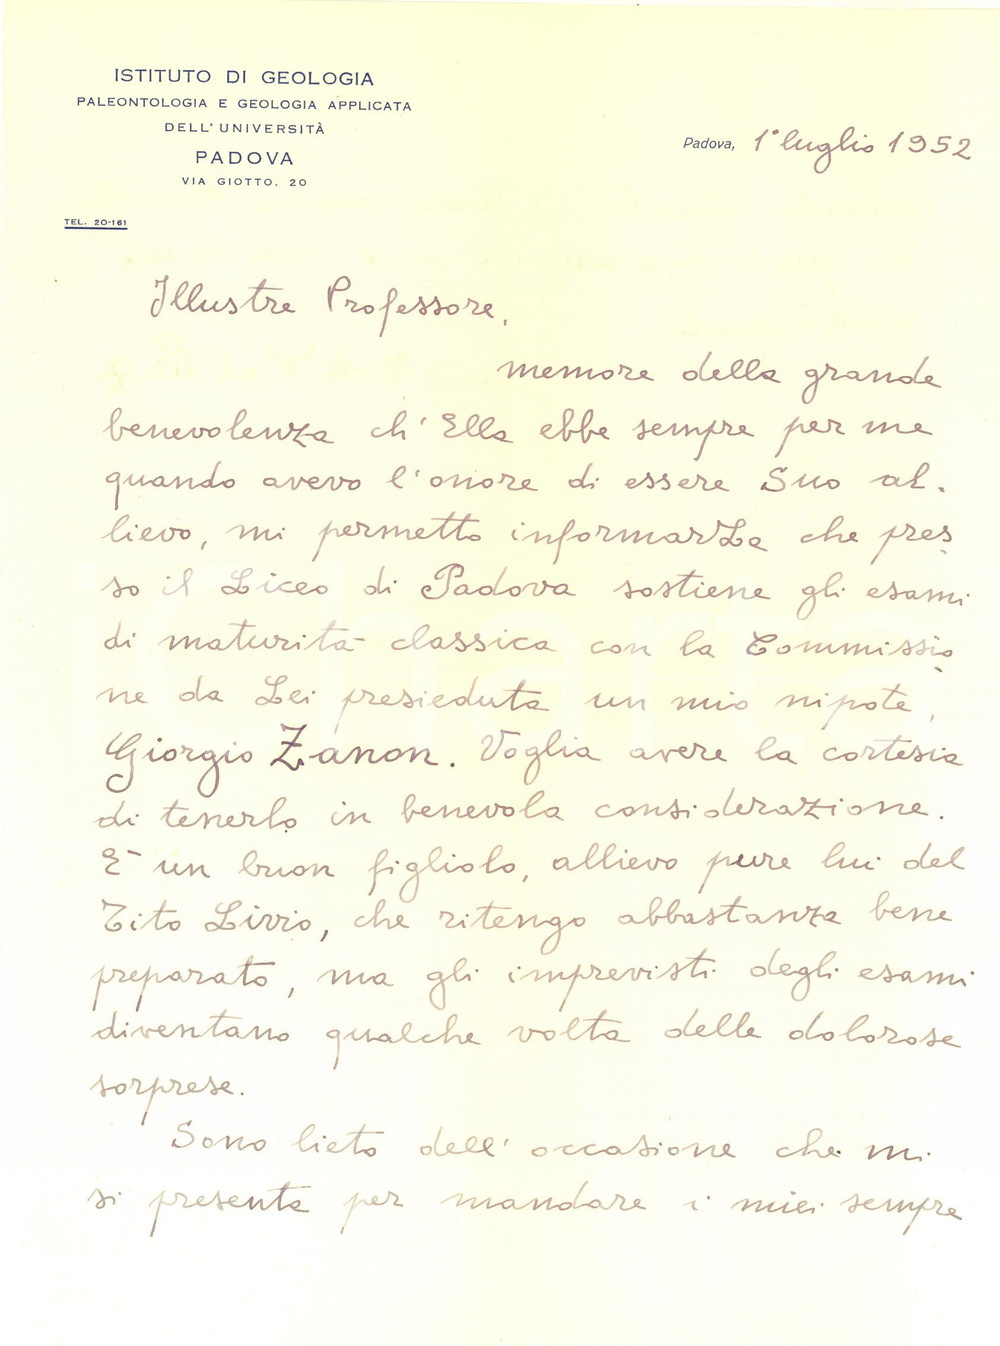 ISTITUTO DI GEOLOGIA
PALEONTOLOGIA E GEOLOGIA APPLICATA
DELL'UNIVERSITÀ
PADOVA
VIA GIOTTO, 20
TEL. 20-161
Padova, 1° luglio 1952
Illustre Professore,
memore della grande
benevolenza ch'Ella ebbe sempre per me
quando avevo l'onore di essere Suo al-
lievo, mi permetto informarLa che pres
so il Liceo di Padova sostiene gli esami
di maturità classica con la Commissio
ne da Lei presieduta un mio nipote,
Giorgio Zanon. Voglia avere la cortesia
di tenerlo in benevola considerazione.
È un buon figliolo, allievo pure lui del
Tito Livio, che ritengo abbastanza bene
preparato, ma gli imprevisti degli esami
diventano qualche volta delle dolorose
sorprese.
Sono lieto dell'occasione che mi
si presenta per mandare i miei sempre